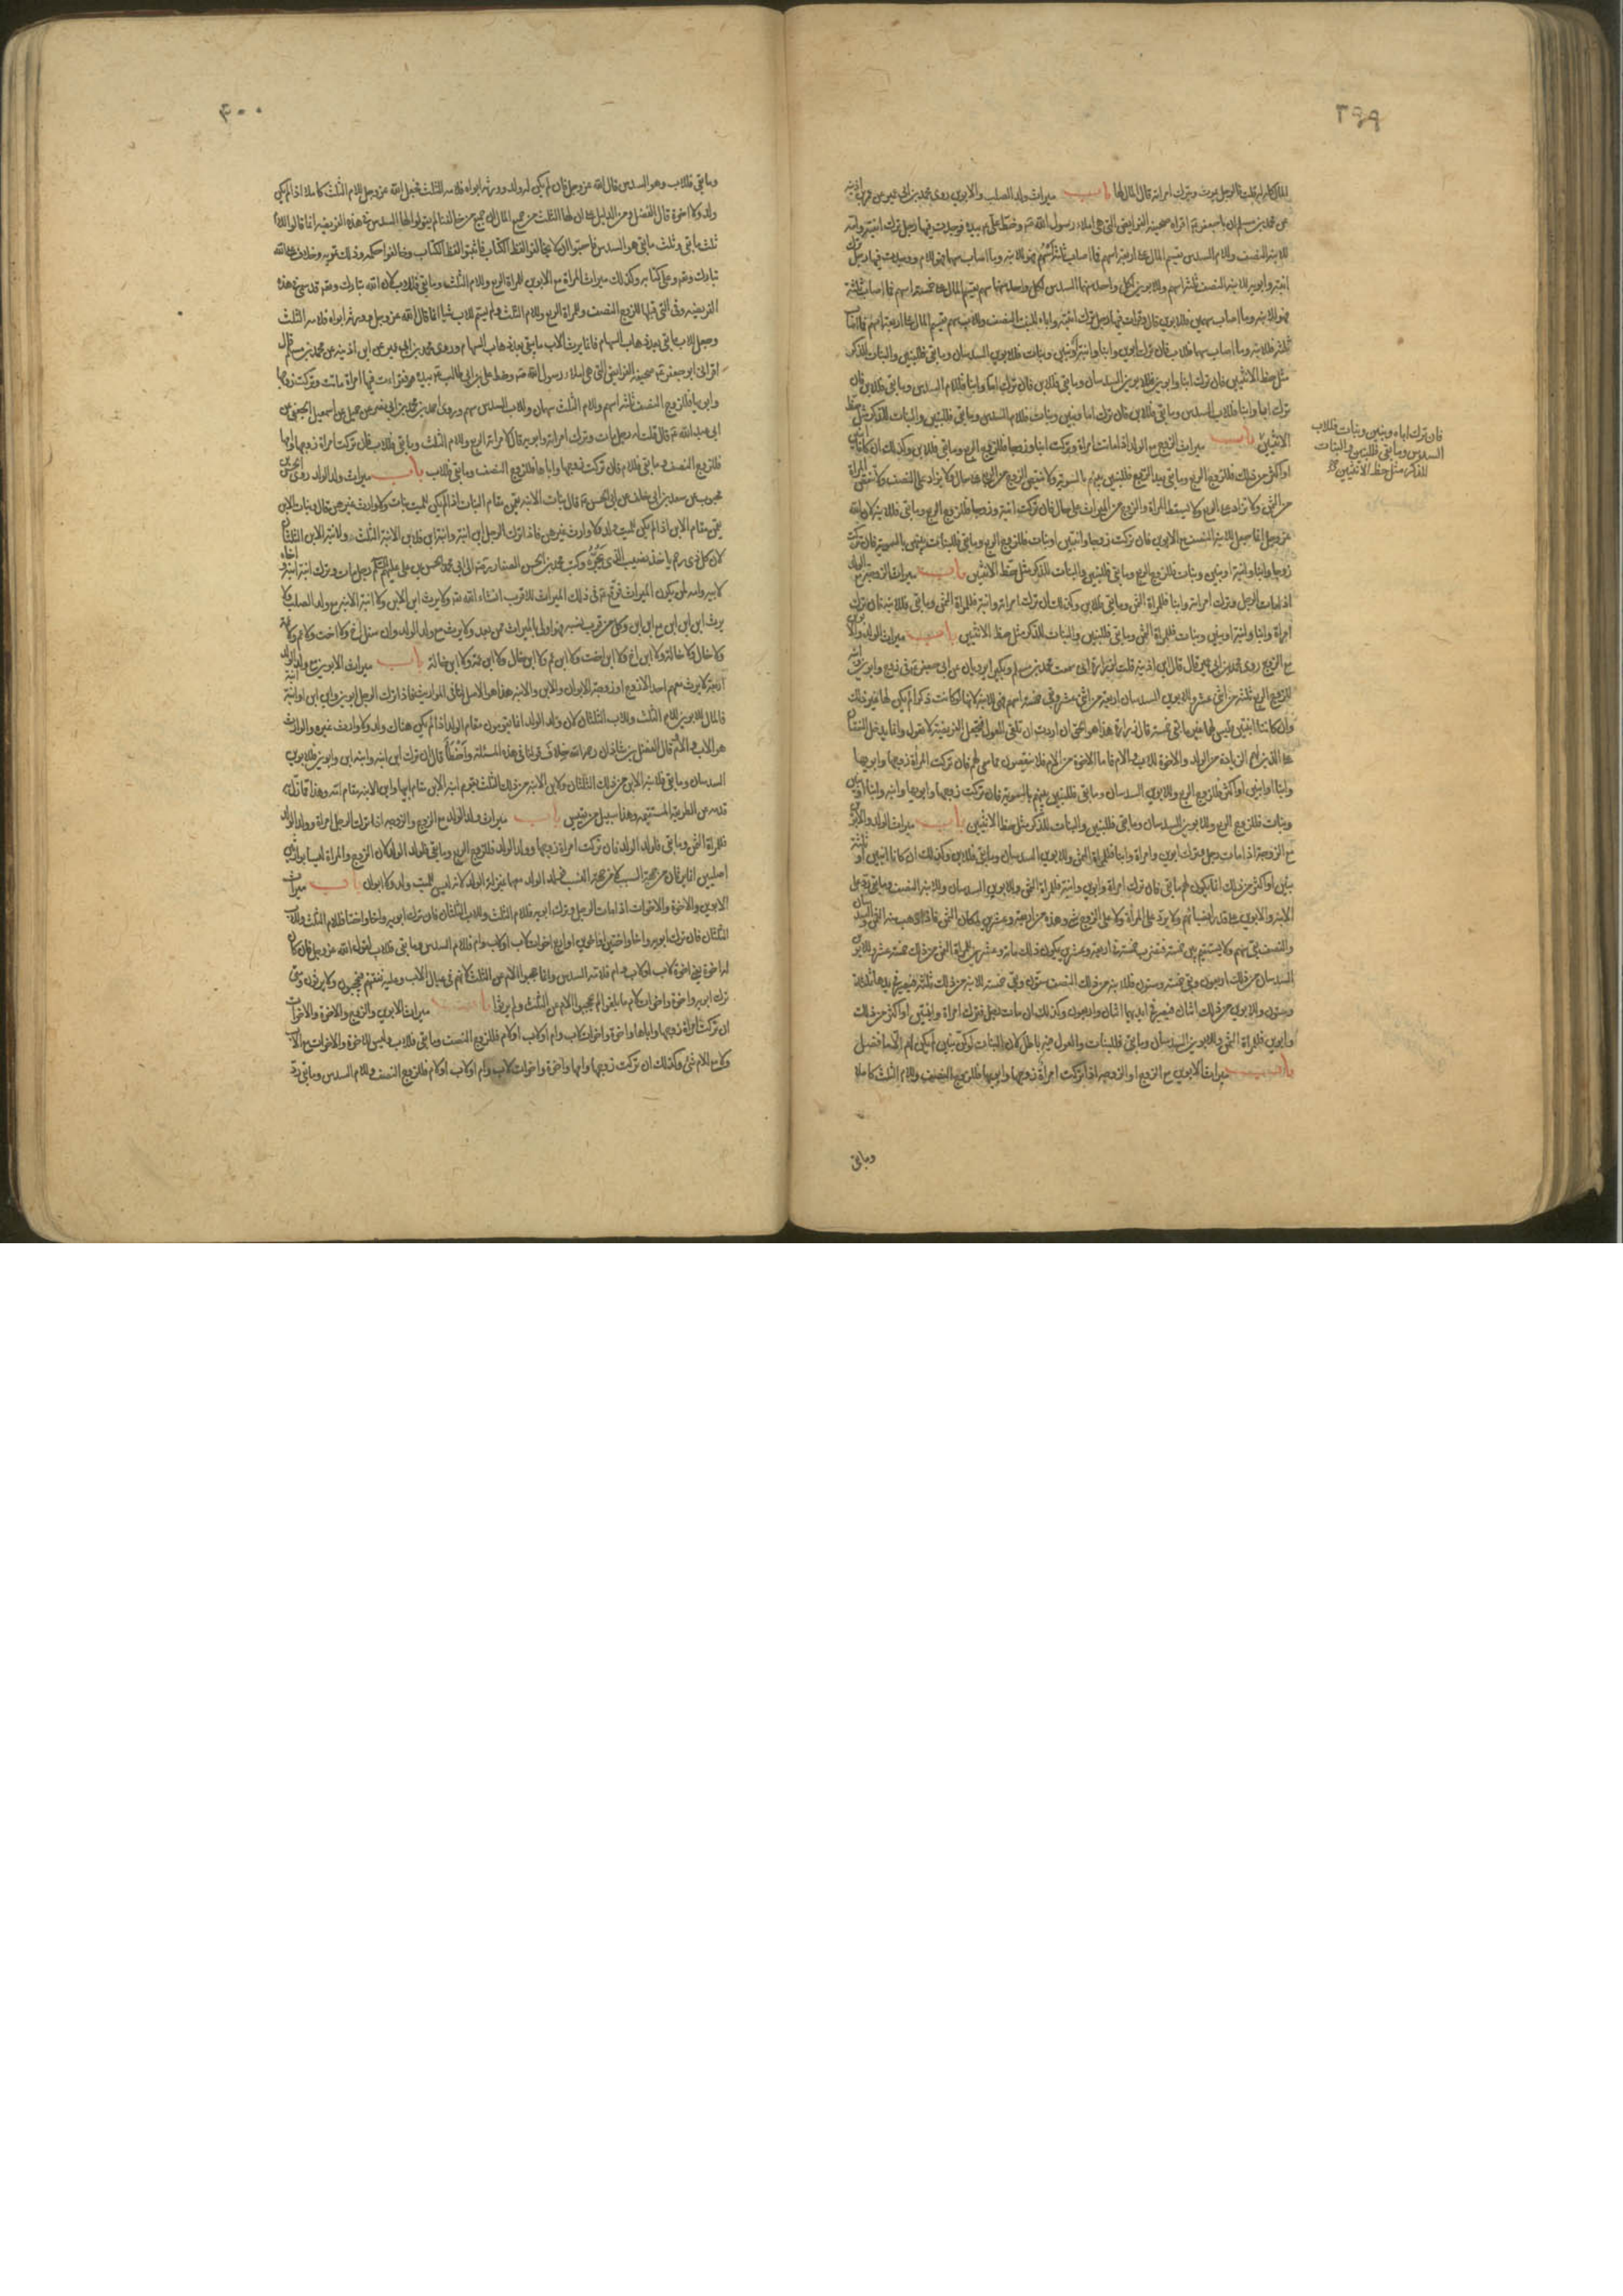 ٣٩٩
المال كله له قلت فالرجل يموت ويترك امرأته قال المال لها باب ميراث ولد الصلب والابوين روى محمد بن ابي عمير عن
عن محمد بن مسلم ان ابا جعفر ع اقراه صحيفة الفرايض التي هي املاء رسول الله ص وخط علي ع بيده فوجدت فيها رجل ترك ابنته وامه
للابنة النصف وللام السدس يقسم المال على اربعة اسهم فما اصاب ثلثة اسهم فهو للابنة وما اصاب سهما فهو للام ووجدت فيها رجل ترك
ابنته وابويه للابنة النصف ثلثة اسهم وللابوين لكل واحد منهما السدس لكل واحد منهما سهم يقسم المال على خمسة اسهم فما اصاب ثلثة
فهو للابنة وما اصاب سهمين فللابوين قال وقرات فيها رجل ترك ابنته واباه للبنت النصف وللاب سهم يقسم المال على اربعة اسهم فما اصاب
ثلثة فللابنة وما اصاب سهما فللاب فان ترك ابوين وابنا وابنة او بنين وبنات فللابوين السدسان وما بقي فللبنين والبنات للذكر
مثل حظ الانثيين فان ترك ابنا وابوين فللابوين السدسان وما بقي فللابن فان ترك اما وابنا فللام السدس وما بقي فللابن فان
ترك ابا وابنا فللاب السدس وما بقي فللابن فان ترك اما وبنين وبنات فللام السدس وما بقي فللبنين والبنات للذكر مثل حظ
الانثيين باب ميراث الزوج مع الولد اذا ماتت امرأة وتركت ابنا وزوجا فللزوج الربع وما بقي فللابن وكذلك ان كانا ابنين
او اكثر من ذلك فللزوج الربع وما بقي بعد الربع فللبنين بينهم بالسوية ولا ينقص الزوج من الربع على حال ولا يزاد على النصف ولا تنقص المرأة
من الثمن ولا تزاد على الربع ولا يسقط المرأة والزوج من الميراث على حال فان تركت ابنة وزوجا فللزوج الربع وما بقي فللابنة لان الله
عز وجل انما جعل للابنة النصف مع الابوين فان تركت زوجا وابنتين او بنات فللزوج الربع وما بقي فللبنات بينهن بالسوية فان تركت
زوجا وابنا وابنة او بنين وبنات فللزوج الربع وما بقي فللبنين والبنات للذكر مثل حظ الانثيين باب ميراث الزوجة مع الولد
اذا مات الرجل وترك امرأة وابنا فللمرأة الثمن وما بقي فللابن وكذلك ان ترك امرأة وابنة فللمرأة الثمن وما بقي فللابنة فان ترك
امرأة وابنا وابنة او بنين وبنات فللمرأة الثمن وما بقي فللبنين والبنات للذكر مثل حظ الانثيين باب ميراث الولد والابوين
مع الزوج روى محمد بن ابي عمير قال قال ابن اذينة قلت لزرارة اني سمعت محمد بن مسلم وبكيرا يرويان عن ابي جعفر ع في زوج وابوين وابنة
للزوج الربع ثلثة من اثني عشر وللابوين السدسان اربعة من اثني عشر وبقي خمسة اسهم فهي للابنة لانها لو كانت ذكرا لم يكن لها غير ذلك
وان كانتا اثنتين فليس لهما غير ما بقي خمسة قال زرارة هذا هو الحق ان اردت ان تلقي العول فتجعل الفريضة لا تعول وانما يدخل النقصان
على الذين لهم الزيادة من الولد والاخوة للاب والام فاما الاخوة من الام فلا ينقصون مما سمي لهم فان تركت المرأة زوجها وابويها
وابنا او ابنين او اكثر فللزوج الربع وللابوين السدسان وما بقي فللبنين بينهم بالسوية فان تركت زوجها وابويها وابنة وابنا او بنين
وبنات فللزوج الربع وللابوين السدسان وما بقي فللبنين والبنات للذكر مثل حظ الانثيين باب ميراث الولد والابوين
مع الزوجة اذا مات رجل وترك ابوين وامرأة وابنا فللمرأة الثمن وللابوين السدسان وما بقي فللابن وكذلك ان كانا ابنين او ثلثة
بنين او اكثر من ذلك انما يكون لهم ما بقي فان ترك امرأة وابوين وابنة فللمرأة الثمن وللابوين السدسان وللابنة النصف وما بقي رد على
الابنة والابوين على قدر انصبائهم ولا يرد على المرأة ولا على الزوج شيء وهذه من اربعة وعشرين لمكان الثمن فاذا ذهب منه الثمن والسدسان
والنصف بقي سهم ولا يستقيم بين خمسة فتضرب خمسة في اربعة وعشرين يكون ذلك مائة وعشرين للمرأة الثمن من ذلك خمسة عشر وللابوين
السدسان من ذلك اربعون وبقي خمسة وستون فللابنة من ذلك النصف ستون وبقي خمسة للابنة من ذلك ثلثة فيصير في يدها ثلثة
وستون وللابوين من ذلك اثنان فيصير في ايديهما اثنان واربعون وكذلك ان مات رجل وترك امرأة وابنتين او اكثر من ذلك
وابوين فللمرأة الثمن وللابوين السدسان وما بقي فللبنات والعول فيه باطل لان البنات لو كن بنين لم يكن لهم الا ما فضل
باب ميراث الابوين مع الزوج او الزوجة اذا تركت امرأة زوجها وابويها فللزوج النصف وللام الثلث كاملا
وما بقي
فان ترك اباه وبنين وبنات فللاب
السدس وما بقي فللبنين والبنات
للذكر مثل حظ الانثيين
٤٠٠
وما بقي فللاب وهو السدس قال الله عز وجل فان لم يكن له ولد وورثه ابواه فلامه الثلث فجعل الله عز وجل للام الثلث كاملا اذا لم يكن
ولد ولا اخوة قال الفضل ومن الدليل على ان لها الثلث من جميع المال ان جميع من خالفنا لم يقولوا لها السدس في هذه الفريضة انما قالوا للام
ثلث ما بقي وثلث ما بقي هو السدس فاحبوا ان لا يخالفوا لفظ الكتاب فاثبتوا لفظ الكتاب وخالفوا حكمه وذلك تمويه وخلاف على الله
تبارك وتعالى وعلى كتابه وكذلك ميراث المرأة مع الابوين للمرأة الربع وللام الثلث وما بقي فللاب لان الله تبارك وتعالى قد سمى في هذه
الفريضة وفي التي قبلها للزوج النصف وللمرأة الربع وللام الثلث ولم يسم للاب شيئا انما قال الله عز وجل وورثه ابواه فلامه الثلث
وجعل للاب ما بقي بعد ذهاب السهام فانما يرث الاب ما يبقى بعد ذهاب السهام وروى محمد بن ابي عمير عن ابن اذينة عن محمد بن مسلم قال
اقراني ابو جعفر ع صحيفة الفرايض التي هي املاء رسول الله ص وخط علي بن ابي طالب ع بيده فقرات فيها امرأة ماتت وتركت زوجها
وابويها فللزوج النصف ثلثة اسهم وللام الثلث سهمان وللاب السدس سهم وروى احمد بن محمد بن ابي نصر عن جميل عن اسمعيل الجعفي عن
ابي عبد الله ع قال قلت له رجل مات وترك امرأته وابويه قال لامرأته الربع وللام الثلث وما بقي فللاب فان تركت امرأة زوجها وامها
فللزوج النصف وما بقي فللام فان تركت زوجها واباها فللزوج النصف وما بقي فللاب باب ميراث ولد الولد روى الحسن بن
محبوب عن سعد بن ابي خلف عن ابي الحسن ع قال بنات الابنة يقمن مقام البنات اذا لم يكن للميت بنات ولا وارث غيرهن قال وبنات الابن
يقمن مقام الابن اذا لم يكن للميت ولد ولا وارث غيرهن فاذا ترك الرجل ابن ابنة وابنة ابن فلابن الابنة الثلث ولابنة الابن الثلثان
لان كل ذي رحم ياخذ نصيب الذي يجره وكتب محمد بن الحسن الصفار رضي الله عنه الى ابي محمد الحسن بن علي عليهم السلام رجل مات وترك ابنة ابنته واخاه
لابيه وامه لمن يكون الميراث فوقع ع في ذلك الميراث للاقرب انشاء الله ولا يرث ابن الابن ولا ابنة الابنة مع ولد الصلب ولا
يرث ابن ابن ابن مع ابن ابن وكل من قرب نسبه فهو اولى بالميراث ممن بعد ولا يرث مع ولد الولد وان سفل اخ ولا اخت ولا عم ولا عمة
ولا خال ولا خالة ولا ابن اخ ولا ابن اخت ولا ابن عم ولا ابن خال ولا ابن عمة ولا ابن خالة باب ميراث الابوين مع ولد الولد
اربعة لا يرث معهم احد الا زوج او زوجة الابوان والابن والابنة هذا هو الاصل لنا في المواريث فاذا ترك الرجل ابوين وابن ابن او ابنة ابنة
فالمال للابوين للام الثلث وللاب الثلثان لان ولد الولد انما يقومون مقام الولد اذا لم يكن هناك ولد ولا وارث غيره والوارث
هو الاب والام قال الفضل بن شاذان رحمه الله خلاف قولنا في هذه المسئلة واخطأ قال ان ترك ابن ابنة وابنة ابن وابوين فللابوين
السدسان وما بقي فلابنة الابن من ذلك الثلثان ولابن الابنة من ذلك الثلث تقوم ابنة الابن مقام ابيها وابن الابنة مقام امه وهذا مما زل به
قدمه عن الطريقة المستقيمة وهذا سبيل من يقيس باب ميراث ولد الولد مع الزوج والزوجة اذا ترك الرجل امرأة وولد الولد
فللمرأة الثمن وما بقي فلولد الولد فان تركت امرأة زوجها وولد الولد فللزوج الربع وما بقي فلولد الولد لان الزوج والمرأة ليسا بوارثين
اصليين انما يرثان من جهة السبب لا من جهة النسب فولد الولد معهما بمنزلة الولد لانه ليس للميت ولد ولا ابوان باب ميراث
الابوين والاخوة والاخوات اذا مات الرجل وترك ابويه فللام الثلث وللاب الثلثان فان ترك ابويه واخا واختا فللام الثلث وللاب
الثلثان فان ترك ابويه واخا واختين او اخوين او اربع اخوات لاب او لاب وام فللام السدس وما بقي فللاب لقول الله عز وجل فان كان
له اخوة يعني اخوة لاب او لاب وام فلامه السدس وانما حجبوا الام عن الثلث لانهم في عيال الاب وعليه نفقتهم فيحجبون ولا يرثون ومتى
ترك ابويه واخوة واخوات لام ما بلغوا لم يحجبوا الام عن الثلث ولم يرثوا باب ميراث الابوين والزوج والاخوة والاخوات
ان تركت امرأة زوجها واباها واخوة واخوات لاب وام او لاب او لام فللزوج النصف وما بقي فللاب وليس للاخوة والاخوات مع الاب
ولا مع الام شيء وكذلك ان تركت زوجها وامها واخوة واخوات لاب وام او لاب او لام فللزوج النصف وللام السدس وما بقي رد